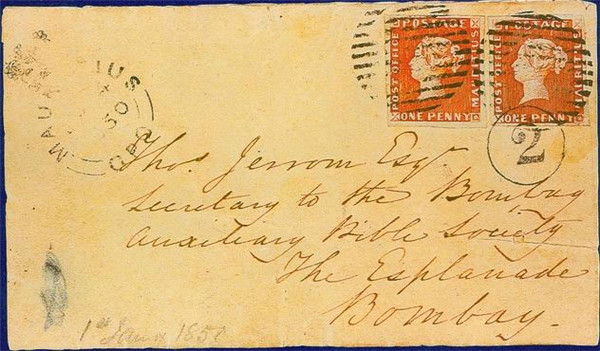 POST OFFICE
MAURITIUS
ONE PENNY
POST OFFICE
MAURITIUS
ONE PENNY
2
MAURITIUS
50
GPO
Thos. Jerrom Esqr.
Secretary to the Bombay
Auxiliary Bible Society
The Esplanade
Bombay.
1st Jany 1850